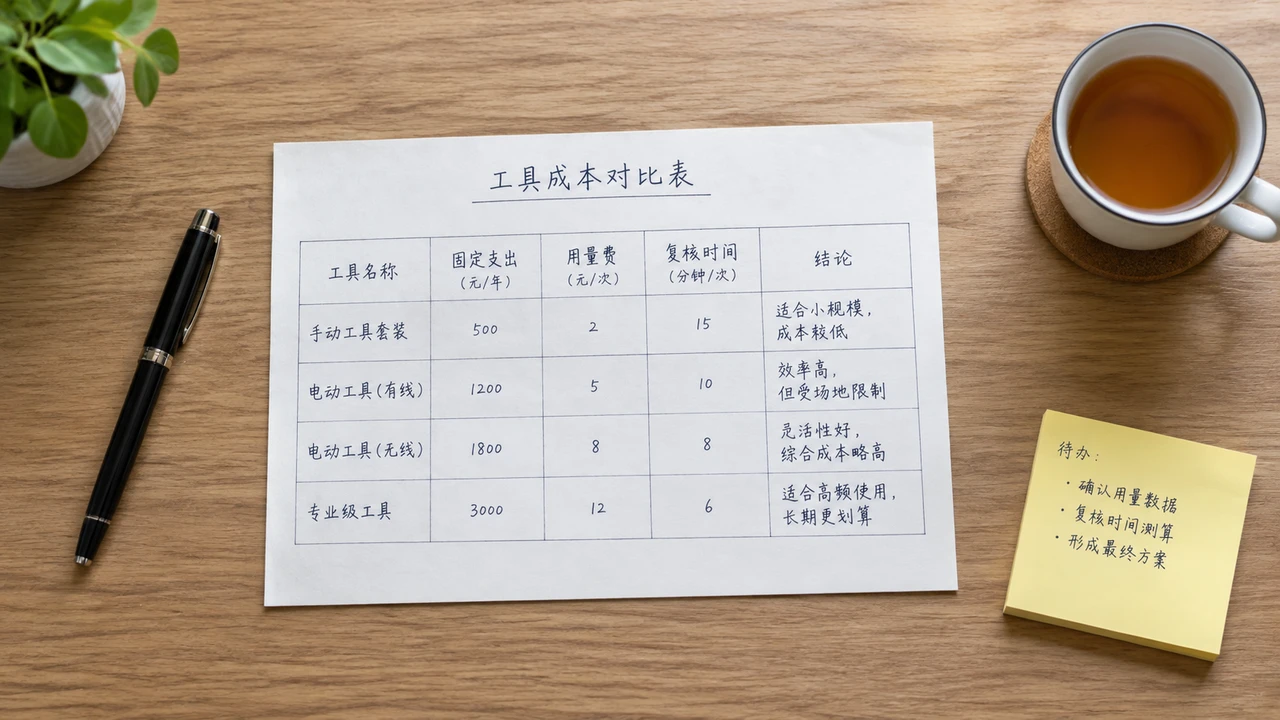 工具成本对比表
工具名称 固定支出 用量费 复核时间 结论
(元/年) (元/次) (分钟/次)
手动工具套装 500 2 15 适合小规模,
成本较低
电动工具(有线) 1200 5 10 效率高,
但受场地限制
电动工具(无线) 1800 8 8 活性好,
综合成本略高
专业级工具 3000 12 6 适合高频使用,
长期更划算
待办:
· 确认用量数据
· 复核时间测算
· 形成最终方案